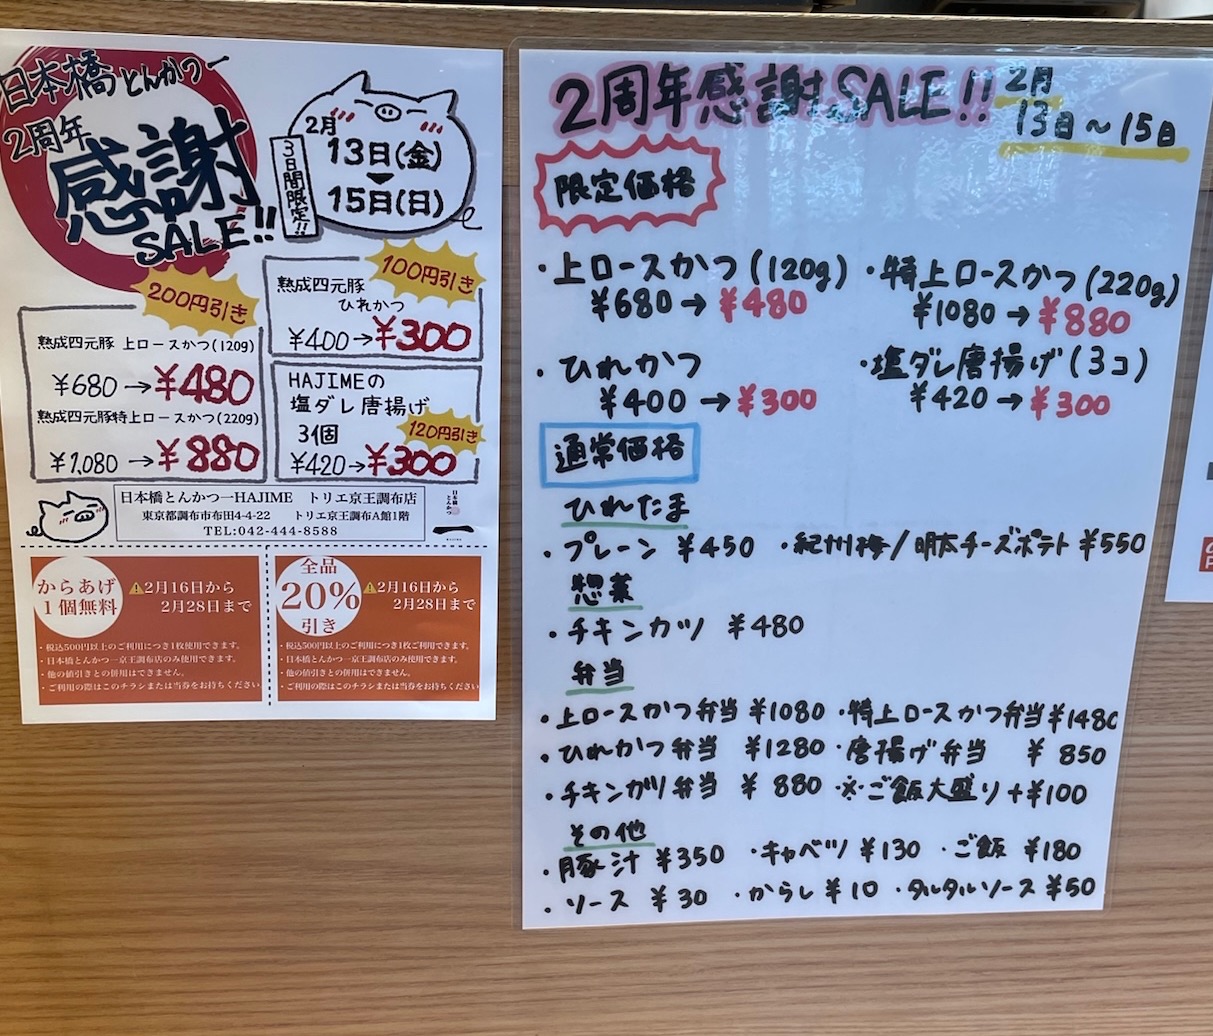 日本橋とんかつ一
2周年
感謝
SALE!!
2月
13日(金)
15日(日)
3日間限定!!
200円引き
熟成四元豚 上ロースかつ(120g)
¥680→¥480
熟成四元豚特上ロースかつ(220g)
¥1,080→¥880
100円引き
熟成四元豚
ひれかつ
¥400→¥300
HAJIMEの
塩ダレ唐揚げ
3個
120円引き
¥420→¥300
日本橋とんかつ一HAJIME トリエ京王調布店
東京都調布市布田4-4-22 トリエ京王調布A館1階
TEL:042-444-8588
日本橋
とんかつ
一
からあげ
1個無料
⚠2月16日から
2月28日まで
・税込500円以上のご利用につき1枚使用できます。
・日本橋とんかつ一京王調布店のみ使用できます。
・他の値引きとの併用はできません。
・ご利用の際はこのチラシまたは当券をお持ちください
全品
20%
引き
⚠2月16日から
2月28日まで
・税込500円以上のご利用につき1枚ご利用できます。
・日本橋とんかつ一京王調布店のみ使用できます。
・他の値引きとの併用はできません。
・ご利用の際はこのチラシまたは当券をお持ちください
2周年感謝SALE!! 2月
13日～15日
限定価格
・上ロースかつ(120g) ・特上ロースかつ(220g)
¥680→¥480 ¥1080→¥880
・ひれかつ ・塩ダレ唐揚げ(3コ)
¥400→¥300 ¥420→¥300
通常価格
ひれたま
・プレーン ¥450 ・紀州梅/明太チーズポテト ¥550
惣菜
・チキンカツ ¥480
弁当
・上ロースかつ弁当 ¥1080 ・特上ロースかつ弁当¥1480
・ひれかつ弁当 ¥1280 ・唐揚げ弁当 ¥850
・チキンカツ弁当 ¥880 ・※ご飯大盛り+¥100
その他
・豚汁 ¥350 ・キャベツ ¥130 ・ご飯 ¥180
・ソース ¥30 ・からし¥10 ・タルタルソース¥50